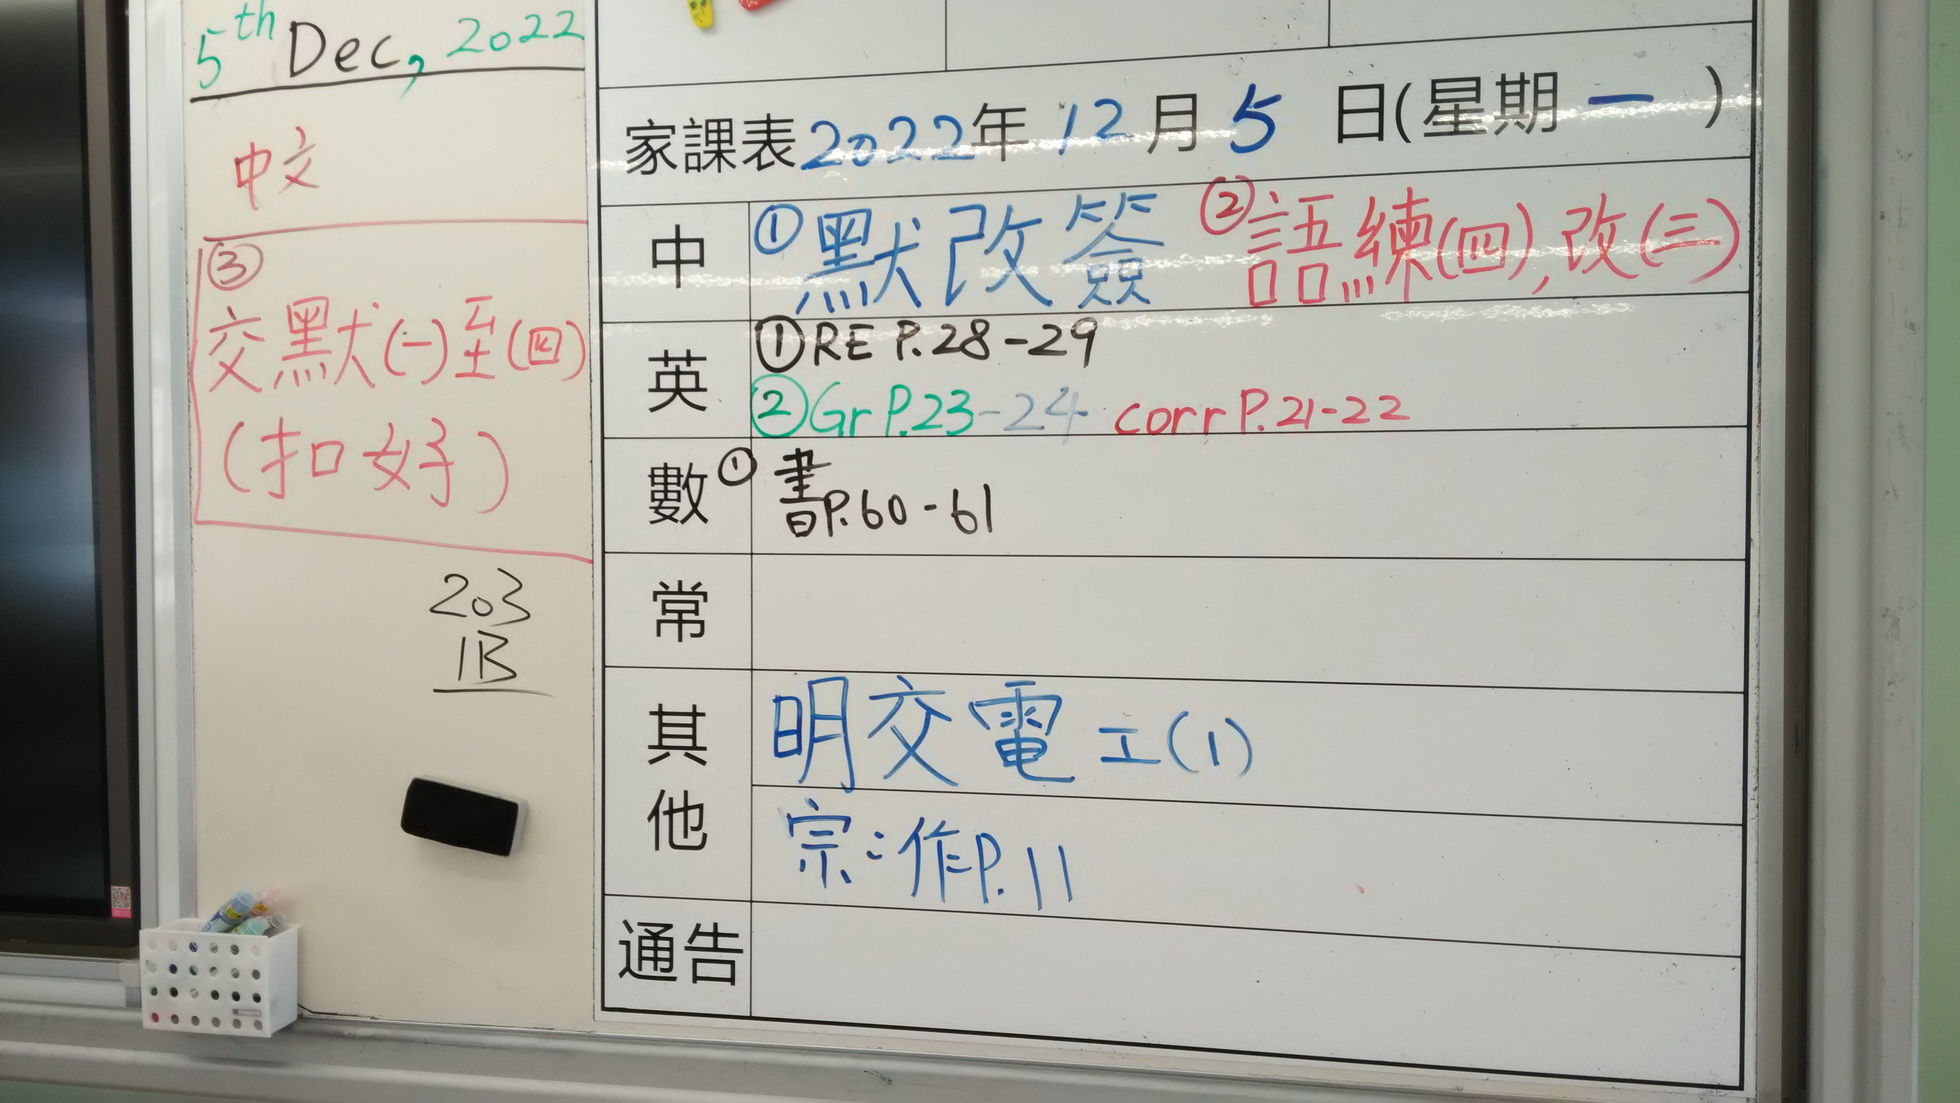 5th Dec, 2022
中文
③
交默(一)至(四)
(扣好)
203
1B
家課表2022年12月5日(星期一)
中 ①默改簽 ②語練(四),改(三)
英 ①RE P.28-29
②Gr P.23-24 corr P.21-22
數 ①書P.60-61
常
其他 明交電工(1)
宗:作P.11
通告